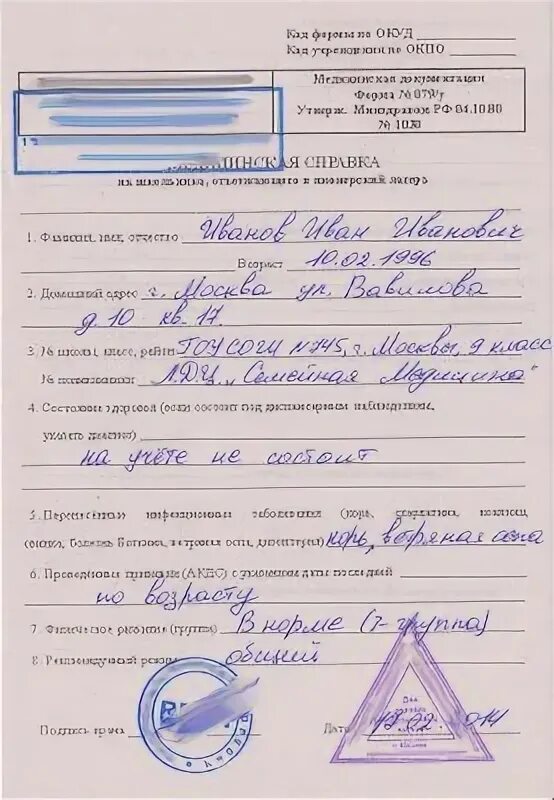 Код формы по ОКУД
Код учреждения по ОКПО
Медицинская документация
Форма № 079/у
Утверж. Минздравом РФ 04.10.80
№ 1030
СКАЯ СПРАВКА
на школьника, отъезжающего в пионерский лагерь
1. Фамилия, имя, отчество Иванов Иван Иванович
Возраст 10.02.1996
2. Домашний адрес г. Москва ул. Вавилова
д.10 кв. 17.
3. № школы, класс, район ГОУ СОГИ №745, г. Москвы, 9 класс
№ поликлиники ЛДЦ „Семейная Медицина"
4. Состояние здоровья (если состоит под диспансерным наблюдением,
указать диагноз)
на учёте не состоит
5. Перенесенные инфекционные заболевания (корь, скарлатина, коклюш,
свинка, болезнь Боткина, ветряная оспа, дизентерия) корь, ветряная оспа
6. Проведенные прививки (АКДС) с указанием даты последней
по возрасту
7. Физическое развитие (группа) В норме (1-группа)
8. Рекомендуемый режим общий
Подпись врача Дата 02 014